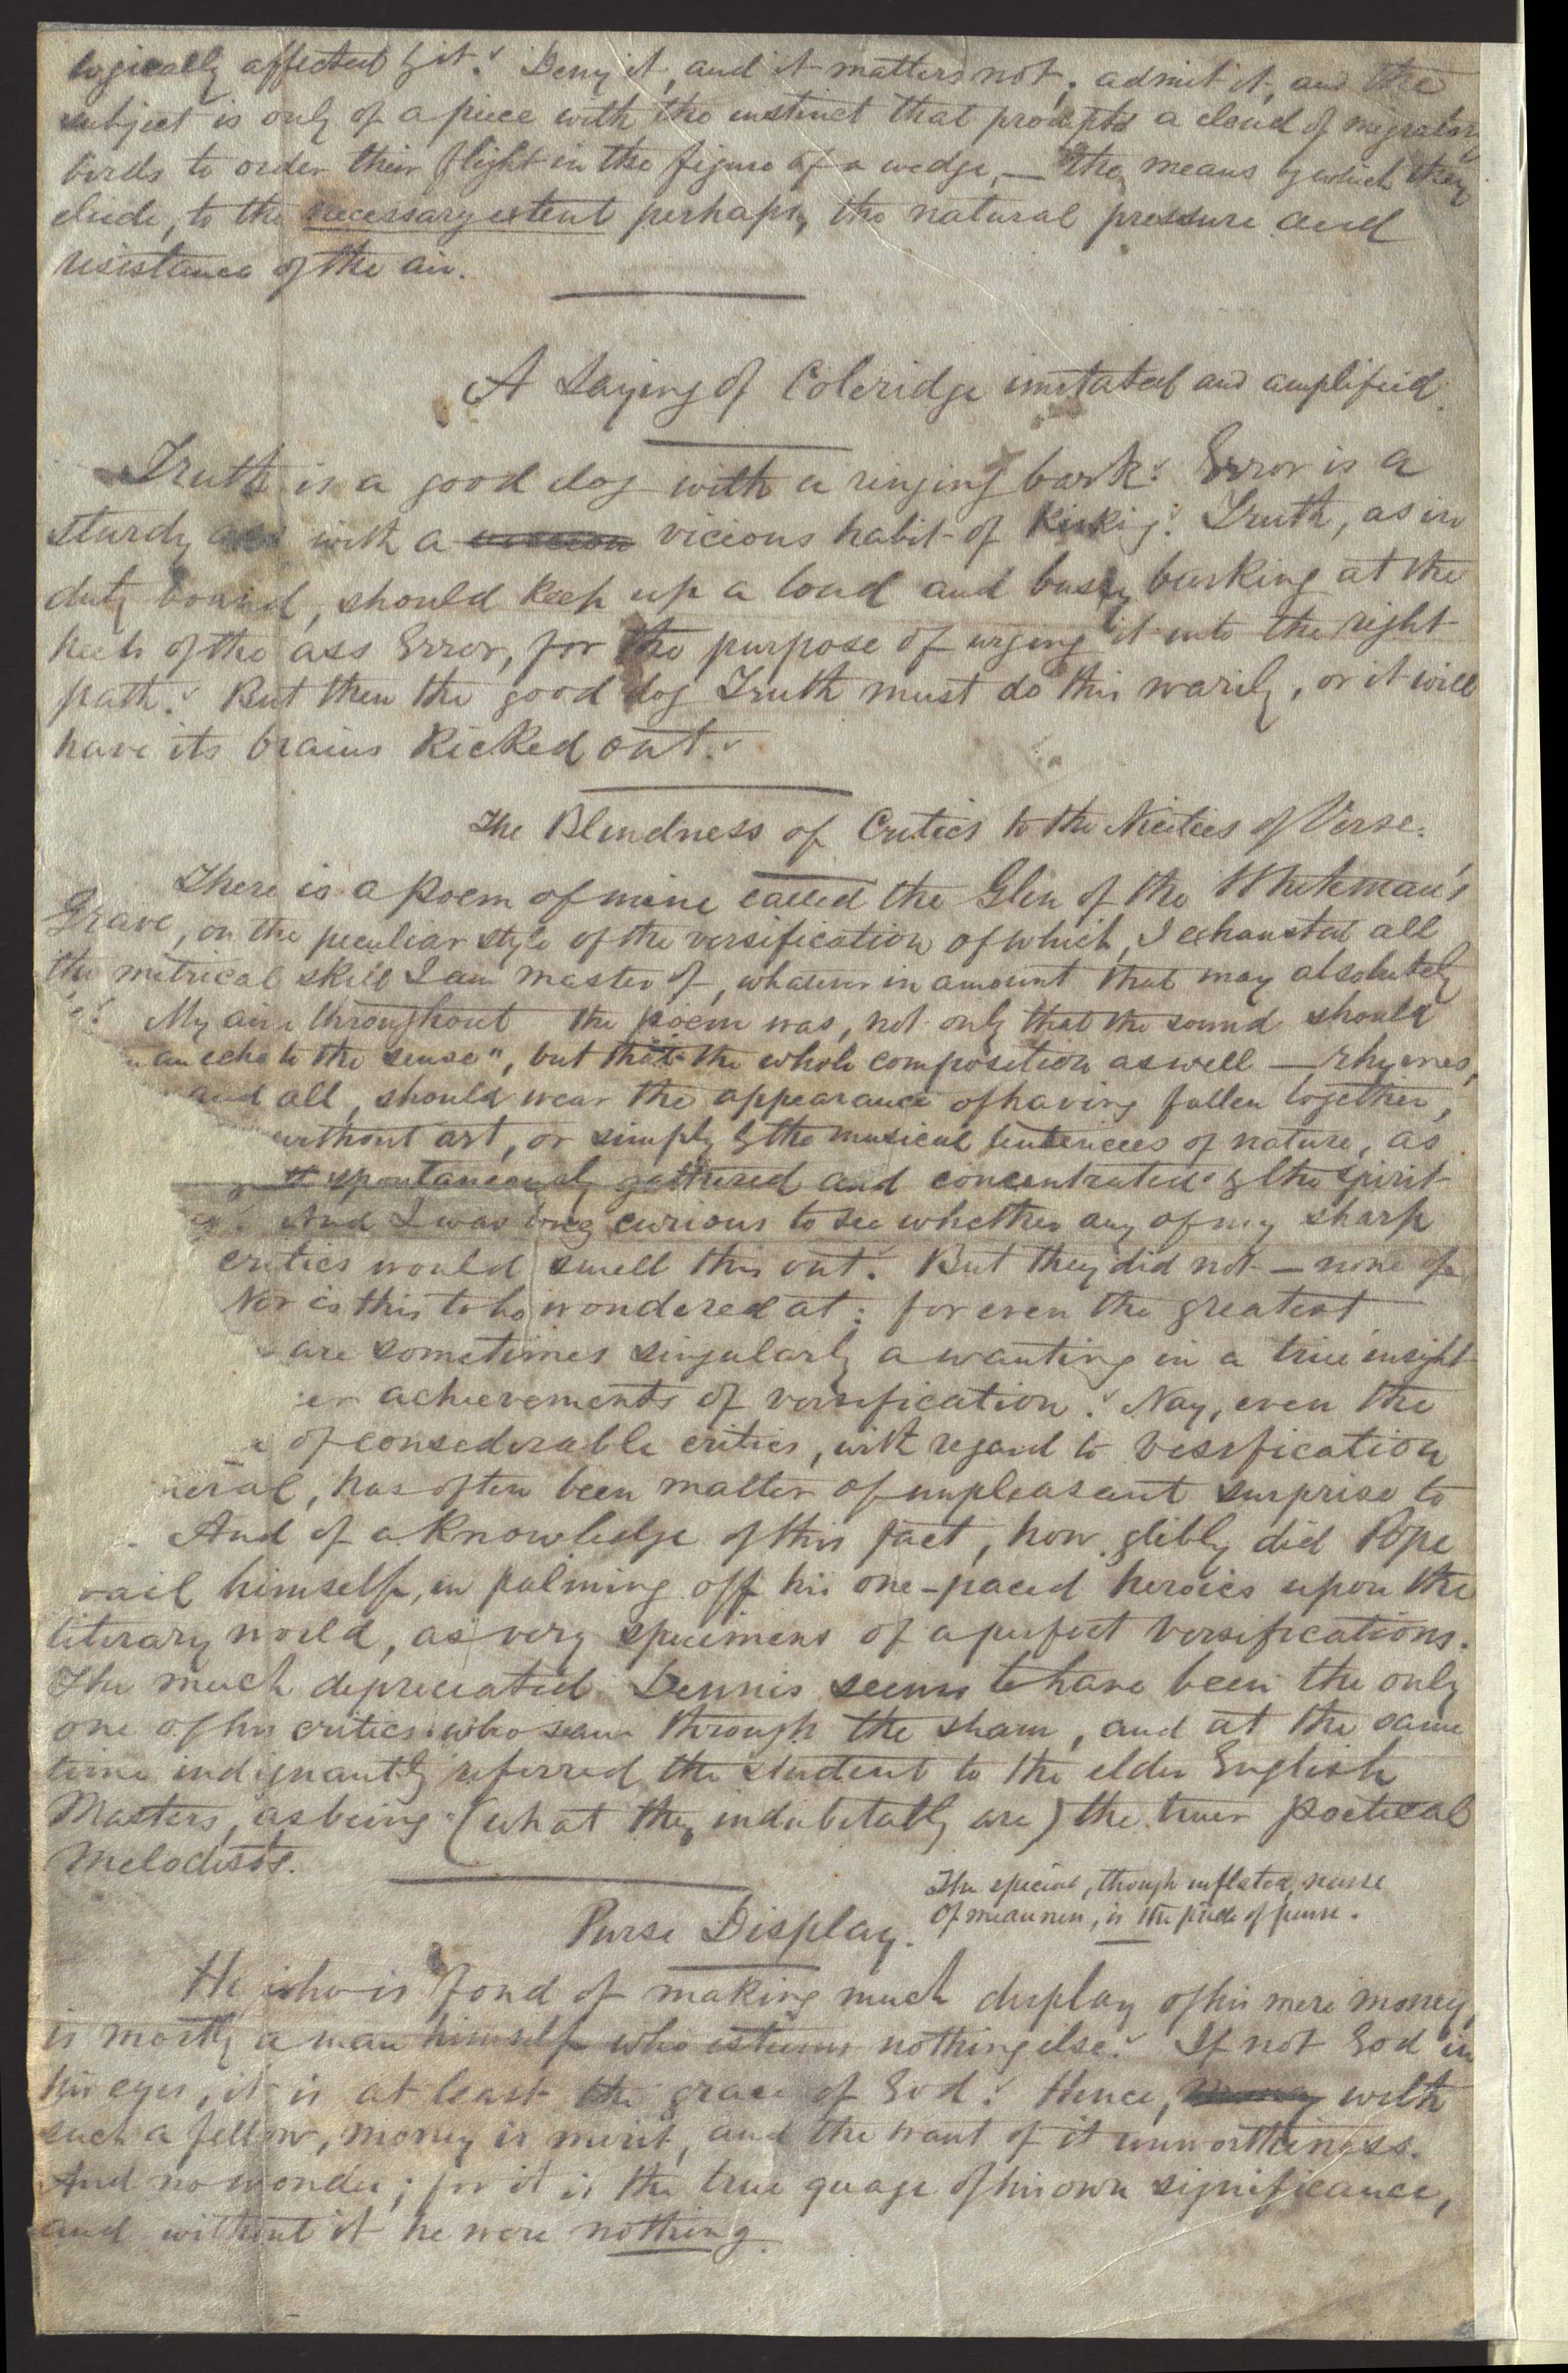 logically affected by it. Deny it, and it matters not; admit it, and the
subject is only of a piece with the instinct that prompts a cloud of migratory
birds to order their flight in the figure of a wedge, — the means by which they
elude, to the necessary extent perhaps, the natural pressure and
resistance of the air.
A Saying of Coleridge imitated and amplified.
Truth is a good dog with a ringing bark. Error is a
sturdy ass with a vicious habit of kicking. Truth, as in
duty bound, should keep up a loud and busy barking at the
heels of the ass Error, for the purpose of urging it into the right
path. But then the good dog Truth must do this warily, or it will
have its brains kicked out.
The Blindness of Critics to the Niceties of Verse.
There is a poem of mine called the Glen of the Whiteman's
Grave, on the peculiar style of the versification of which, I exhausted all
the metrical skill I am master of, whatever in amount that may absolutely
My aim throughout the poem was, not only that the sound should
an echo to the sense", but that the whole composition as well — rhymes,
and all, should wear the appearance of having fallen together,
without art, or simply by the musical tendencies of nature, as
it spontaneously gathered and concentrated by the spirit
And I was long curious to see whether any of my sharp
critics would smell this out. But they did not — none of
Nor is this to be wondered at: for even the greatest
are sometimes singularly a wanting in a true insight
er achievements of versification. Nay, even the
of considerable critics, with regard to versification
neral, has often been matter of unpleasant surprise to
And of a knowledge of this fact, how glibly did Pope
vail himself, in palming off his one-paced heroics upon the
literary world, as very specimens of a perfect versifications.
The much depreciated Dennis seems to have been the only
one of his critics who saw through the sham, and at the same
time indignantly referred the student to the elder English
Masters, as being (what they indubitably are) the truer poetical
Melodists.
Purse Display.
The special, though inflated, sense
Of mean men, is the pride of pence.
He who is fond of making much display of his mere money,
is mostly a man himself who esteems nothing else. If not God in
his eyes, it is at least the grace of God. Hence, with
such a fellow, money is merit, and the want of it unworthiness.
And no wonder; for it is the true guage of his own significance,
and without it he were nothing.